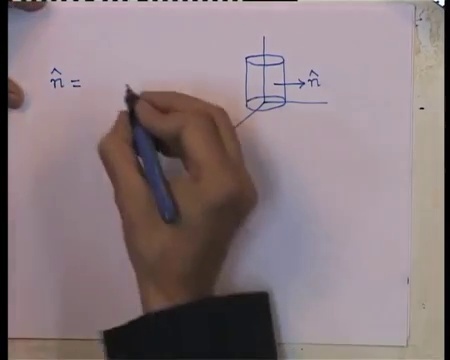 n̂ =
n̂